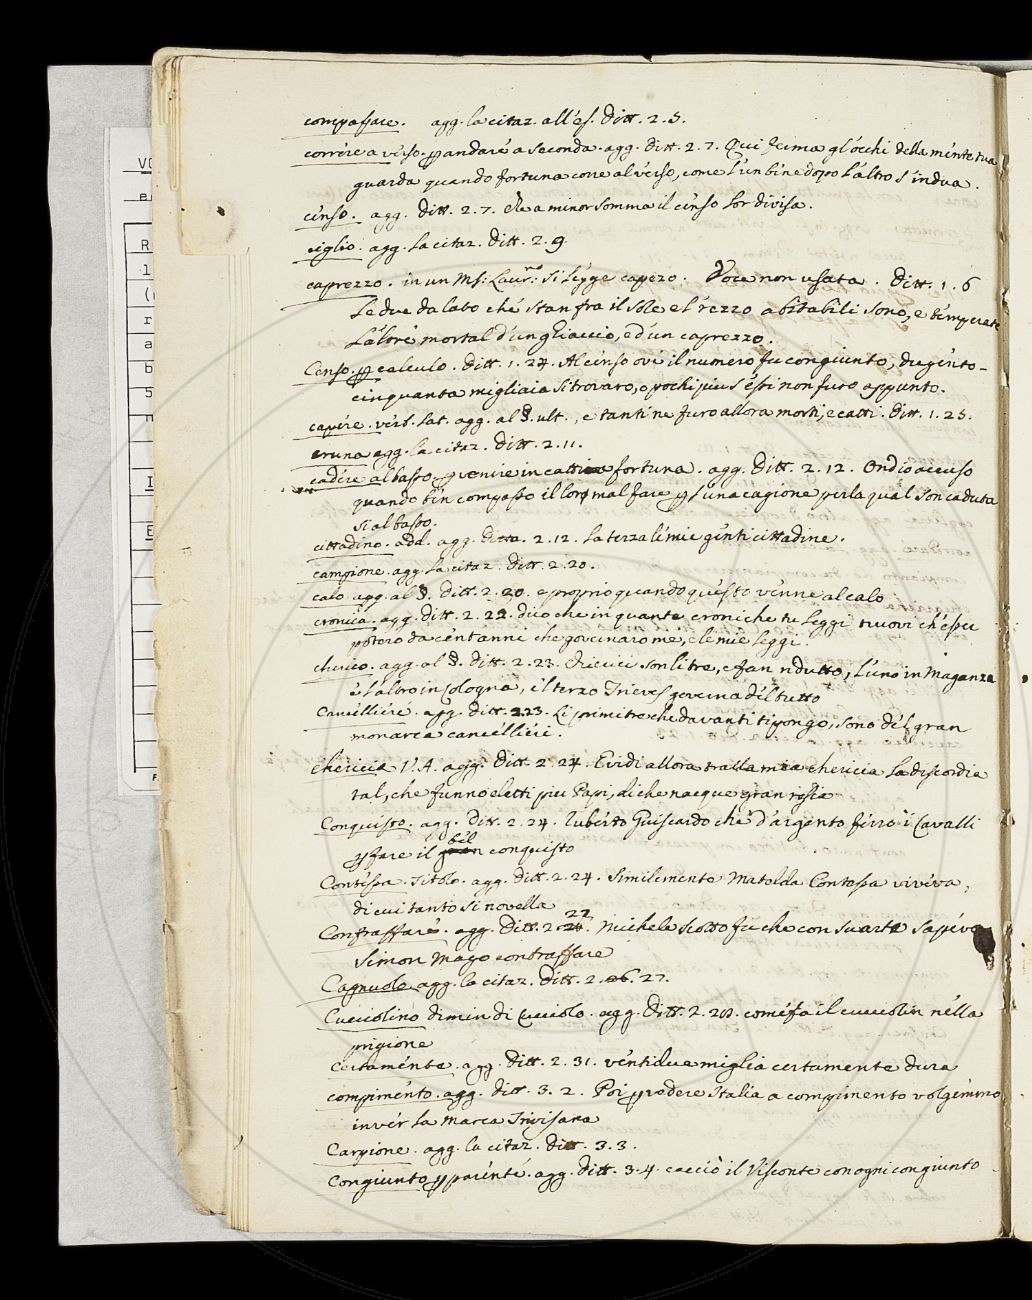 compassare. agg. la citaz. all'es. Ditt. 2. 5.
correre a verso. p andare a seconda. agg. Ditt. 2. 7. Qui ferma gl'occhi della mente tua
guarda quando fortuna corre al verso, come l'un bene dopo l'altro s'indua.
censo. agg. Ditt. 2. 7. E a minor somma il censo lor divisa.
ciglio. agg. la citaz. Ditt. 2. 9.
caprezzo. in un Ms: Laur.no: si legge capezo. Voce non usata. Ditt. 1. 6
Le due dalato che stan fra il sole e l'rezzo abitabili sono, e temperate
L'altre mortal d'un ghiaccio, e d'un caprezzo.
Censo. p calculo. Ditt. 1. 24. Al censo ove il numero fu congiunto, dugento-
cinquanta migliaia si trovaro, o pochi piu s'essi non furo appunto.
capere. verb. Lat. agg. al §. ult., e tanti ne furo allora morti, e catti. Ditt. 1. 25.
cruna agg. la citaz. Ditt. 2. 11.
cadere al basso p venire in cattiva fortuna. agg. Ditt. 2. 12. Ond'io accuso
quando ti'n compasso il loro mal fare p l'una cagione per la qual son caduta
si al basso.
cittadino. add. agg. Ditta. 2. 12. La terza le mie genti cittadine.
campione. agg. la citaz. Ditt. 2. 20.
calo agg. al §. Ditt. 2. 20. e proprio quando questo venne al calo
cronica. agg. Ditt. 2. 22. dico che in quante croniche tu leggi trovi ch'essu
potero da cent'anni che governaro me, e le mie leggi.
cherico. agg. al §. Ditt. 2. 23. Cherici son li tre, e fan ridutto, l'uno in Maganza
è l'altro in Cologna, il terzo Trieves governa del tutto
Cancelliere. agg. Ditt. 2. 23. Li primi tre che davanti ti pongo, sono del gran
monarca cancellieri.
chericia V. A. agg. Ditt. 2. 24. E vidi allora tralla mia chericia la discordia
tal, che funno eletti piu Papi, di che nacque gran resia
Conquisto. agg. Ditt. 2. 24. Ruberto Guiscardo che d'argento ferro i cavalli
p fare il bel conquisto
Contessa. Titolo. agg. Ditt. 2. 24. Similemente Matelda Contessa viveva,
di cui tanto si novella
Contraffare. agg. Ditt. 2. 27. Michele Scotto fu che con su'arte sapeva
Simon Mago contraffare
Cagnuolo. agg. la citaz. Ditt. 2. 27.
Cucciolino dimin di Cucciolo. agg. Ditt. 2. 28. come fa il cucciolin nella
prigione
Certamente. agg. Ditt. 2. 31. ventidue miglia certamente dura
compimento. agg. Ditt. 3. 2. Poi p vedere Italia a compimento volgemmo
inver la Marca Trivisana
Carpione. agg. la citaz. Ditt. 3. 3.
Congiunto p parente. agg. Ditt. 3. 4. cacciò il Visconte con ogni congiunto